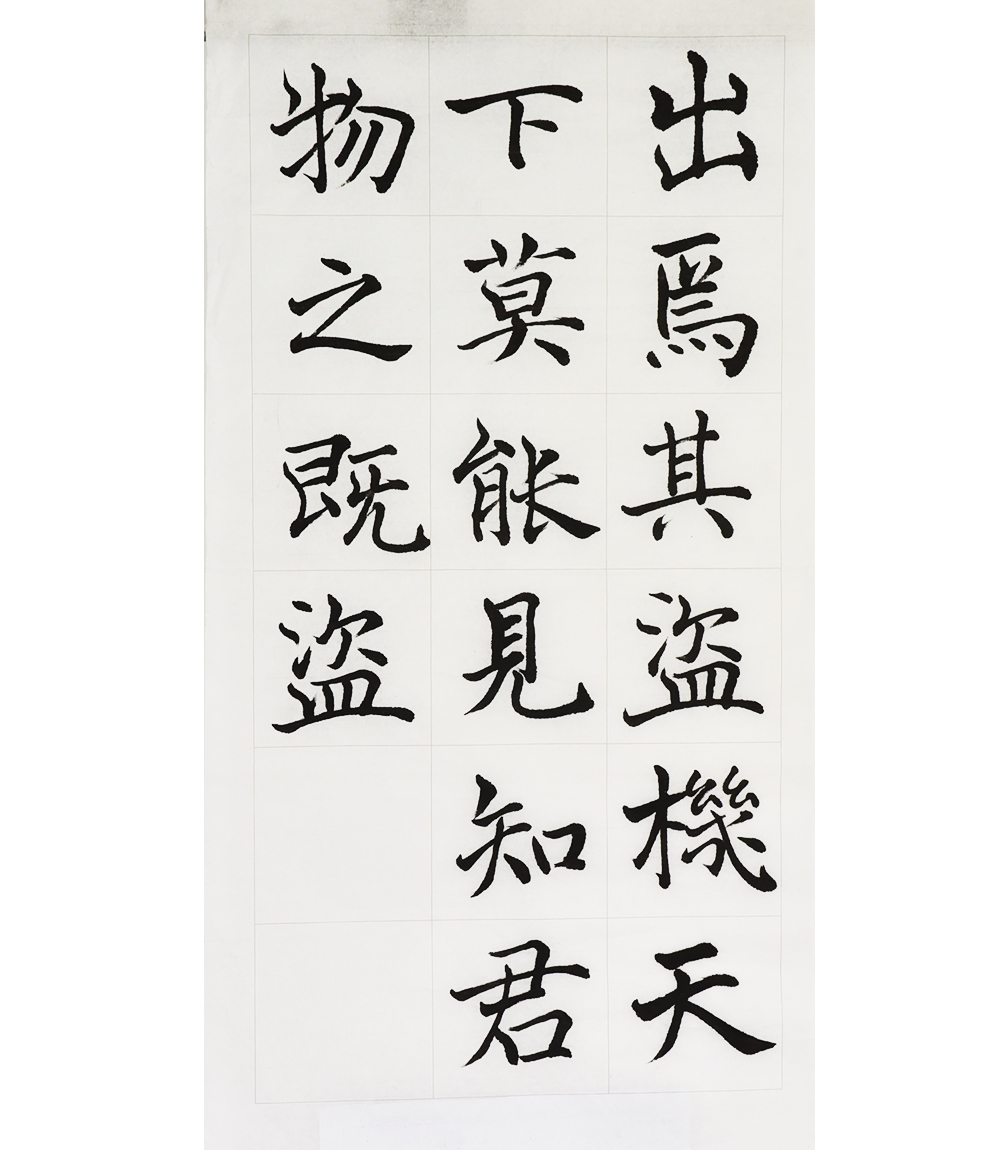 出焉其盜機天
下莫能見知君
物之既盜